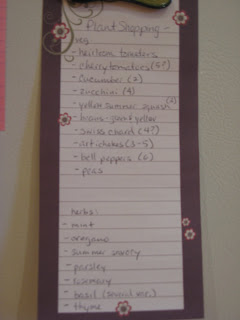 Plant Shopping -
veg:
- heirloom tomatoes
- cherry tomatoes (6?)
- cucumber (2)
- zucchini (4)
- yellow summer squash (2)
- beans - giant yellow
- swiss chard (4?)
- artichokes (3-5)
- bell peppers (6)
- peas
herbs:
- mint
- oregano
- summer savory
- parsley
- rosemary
- basil (several var.)
- thyme